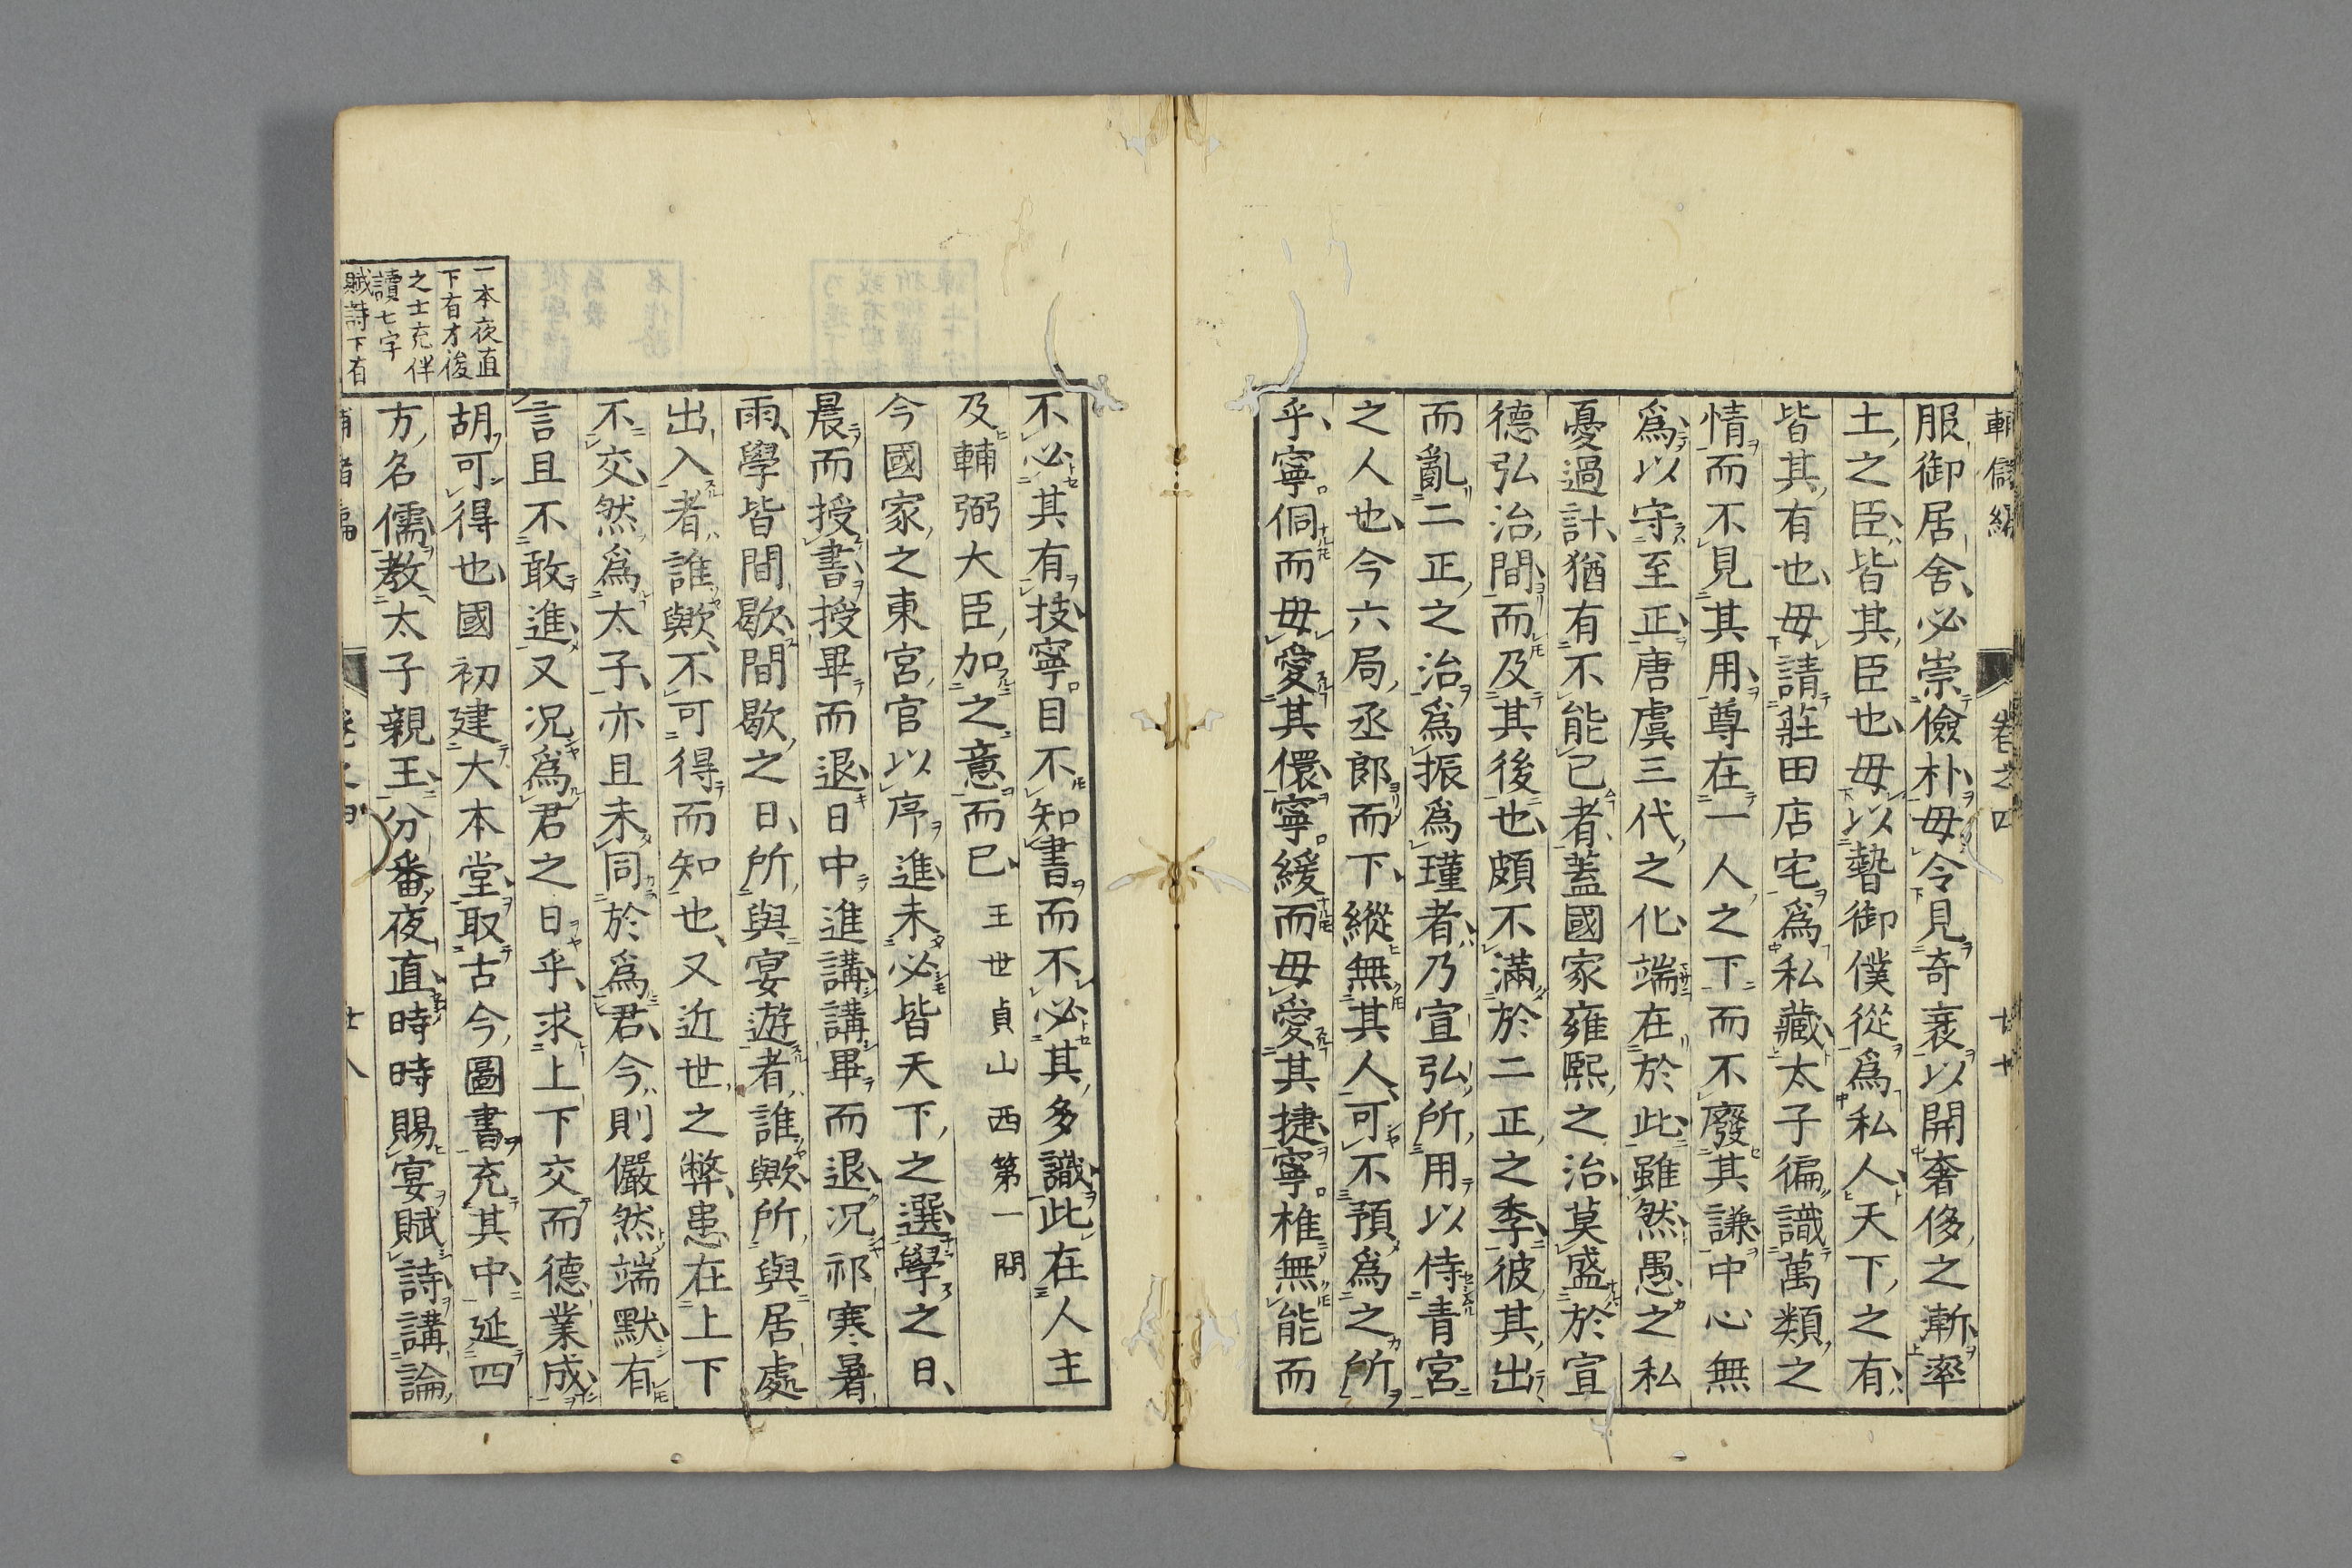 輔儲編 卷之四
服御居舍必崇儉朴毋令見奇衺以開奢侈之漸率
土之臣皆其臣也毋以暬御僕從爲私人天下之有
皆其有也毋請莊田店宅爲私藏太子徧識萬類之
情而不見其用尊在一人之下而不廢其謙中心無
爲以守至正唐虞三代之化端在於此雖然愚之私
憂過計猶有不能已者蓋國家雍熙之治莫盛於宣
德弘治間而及其後也頗不滿於二正之季彼其出
而亂二正之治爲振爲瑾者乃宣弘所用以侍青宮
之人也今六局丞郎而下縱無其人可不預爲之所
乎寧侗而毋愛其儇寧緩而毋愛其捷寧椎無能而
不必其有技寧目不知書而不必其多識此在人主
及輔弼大臣加之意而已 王世貞山西第一問
今國家之東宮官以序進未必皆天下之選學之日
晨而授書授畢而退日中進講講畢而退况祁寒暑
雨學皆間歇間歇之日所與宴遊者誰歟所與居處
出入者誰歟不可得而知也又近世之弊患在上下
不交然爲太子亦且未同於爲君今則儼然端默有
言且不敢進又况爲君之日乎求上下交而德業成
胡可得也國初建大本堂取古今圖書充其中延四
方名儒教太子親王分番夜直時時賜宴賦詩講論
一本夜直
下有才俊
之士充伴
讀七字
賦詩下有